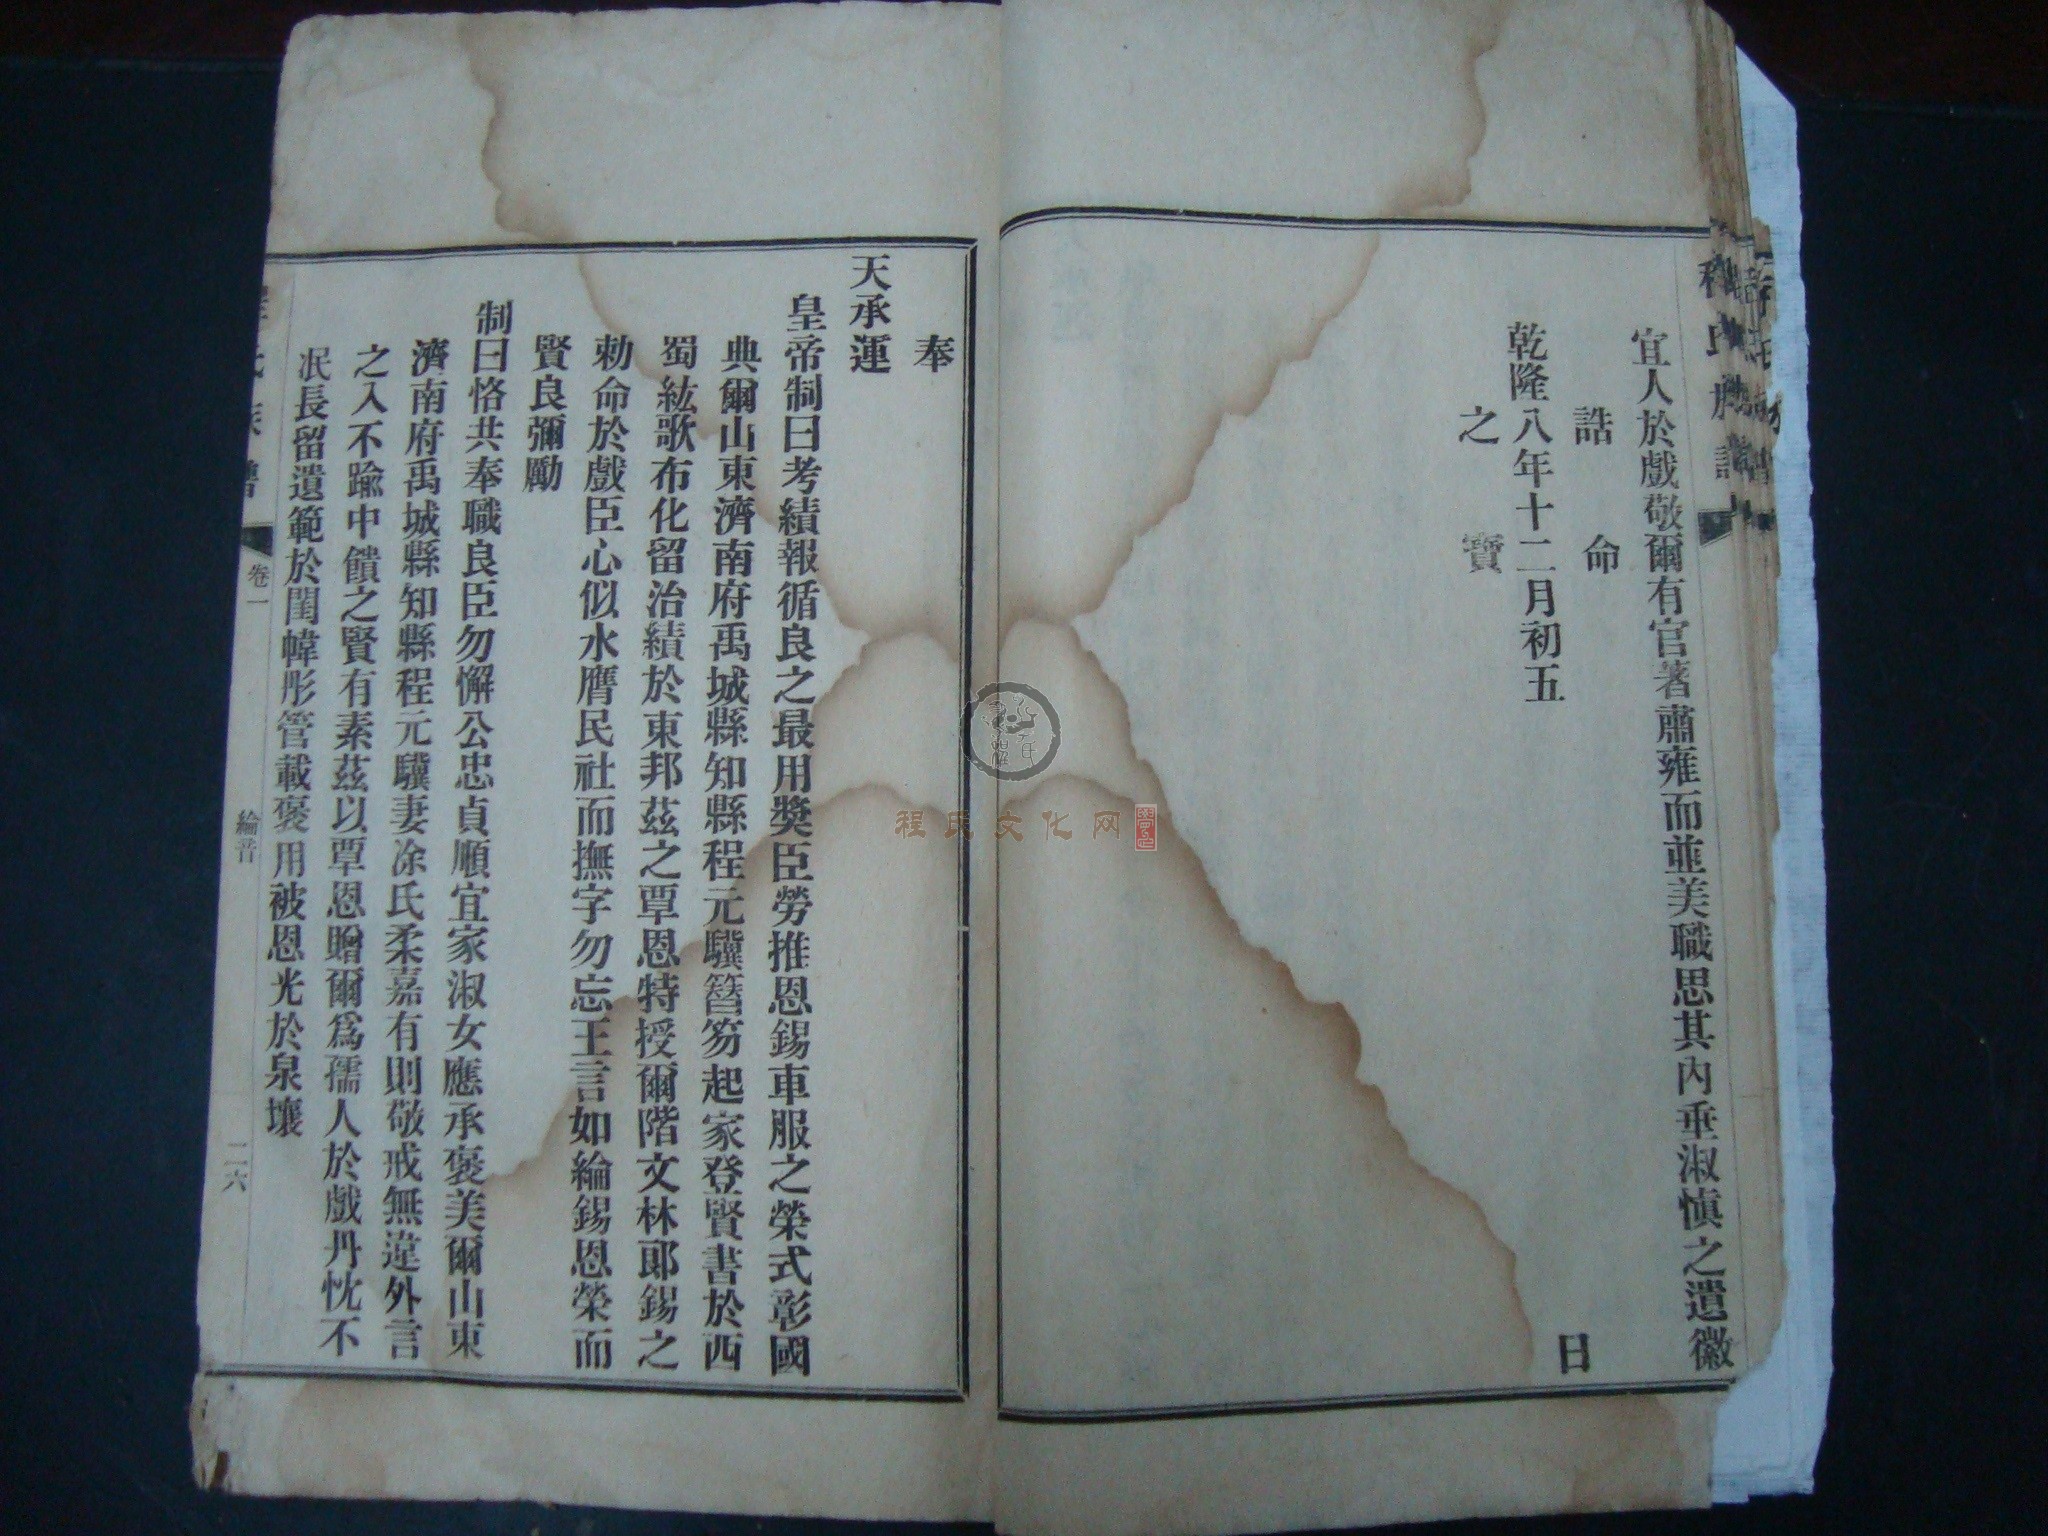 宜人於戲敬爾有官著肅雍而並美職思其內垂淑愼之遺徽
誥命
乾隆八年十二月初五日
之寶
奉
天承運
皇帝制曰考績報循良之最用獎臣勞推恩錫車服之榮式彰國
典爾山東濟南府禹城縣知縣程元驥簪笏起家登賢書於西
蜀絃歌布化留治績於東邦茲之覃恩特授爾階文林郎錫之
勅命於戲臣心似水膺民社而撫字勿忘王言如綸錫恩榮而
賢良彌勵
制曰恪共奉職良臣勿懈公忠貞順宜家淑女應承褒美爾山東
濟南府禹城縣知縣程元驥妻凃氏柔嘉有則敬戒無違外言
之入不踰中饋之賢有素茲以覃恩贈爾爲孺人於戲丹忱不
泯長留遺範於閨幃彤管載褒用被恩光於泉壤
卷一
綸音
二六
程氏文化网